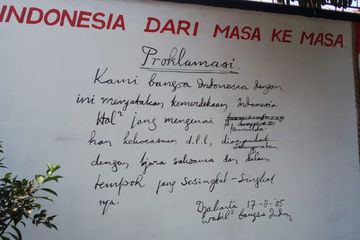 INDONESIA DARI MASA KE MASA
Proklamasi.
Kami bangsa Indonesia dengan
ini menjatakan kemerdekaan Indonesia
Hal² jang mengenai
kan kekoeasaan d.l.l,
dengan tjara saksama dan dalam
tempoh jang sesingkat-singkat
nja.
Djakarta 17-8-05
Wakil² bangsa Indon.